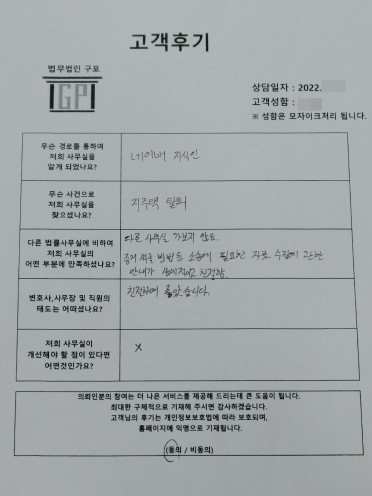 고객후기
법무법인 구포
GP
상담일자 : 2022.
고객성함 :
※ 성함은 모자이크처리 됩니다.
무슨 경로를 통하여
저희 사무실을
알게 되었나요?
네이버 지식인
무슨 사건으로
저희 사무실을
찾으셨나요?
지주택 탈퇴
다른 법률사무실에 비하여
저희 사무실의
어떤 부분에 만족하셨나요?
다른 사무실 가보지 않음.
증거 서류 방법 등 소송에 필요한 자료 수집에 관한
안내가 상세적이고 친절함.
변호사,사무장 및 직원의
태도는 어떠셨나요?
친절하여 좋았습니다.
저희 사무실이
개선해야 할 점이 있다면
어떤것인가요?
X
의뢰인분의 참여는 더 나은 서비스를 제공해 드리는데 큰 도움이 됩니다.
최대한 구체적으로 기재해 주시면 감사하겠습니다.
고객님의 후기는 개인정보보호법에 따라 보호되며,
홈페이지에 익명으로 기재됩니다.
(동의 / 비동의)